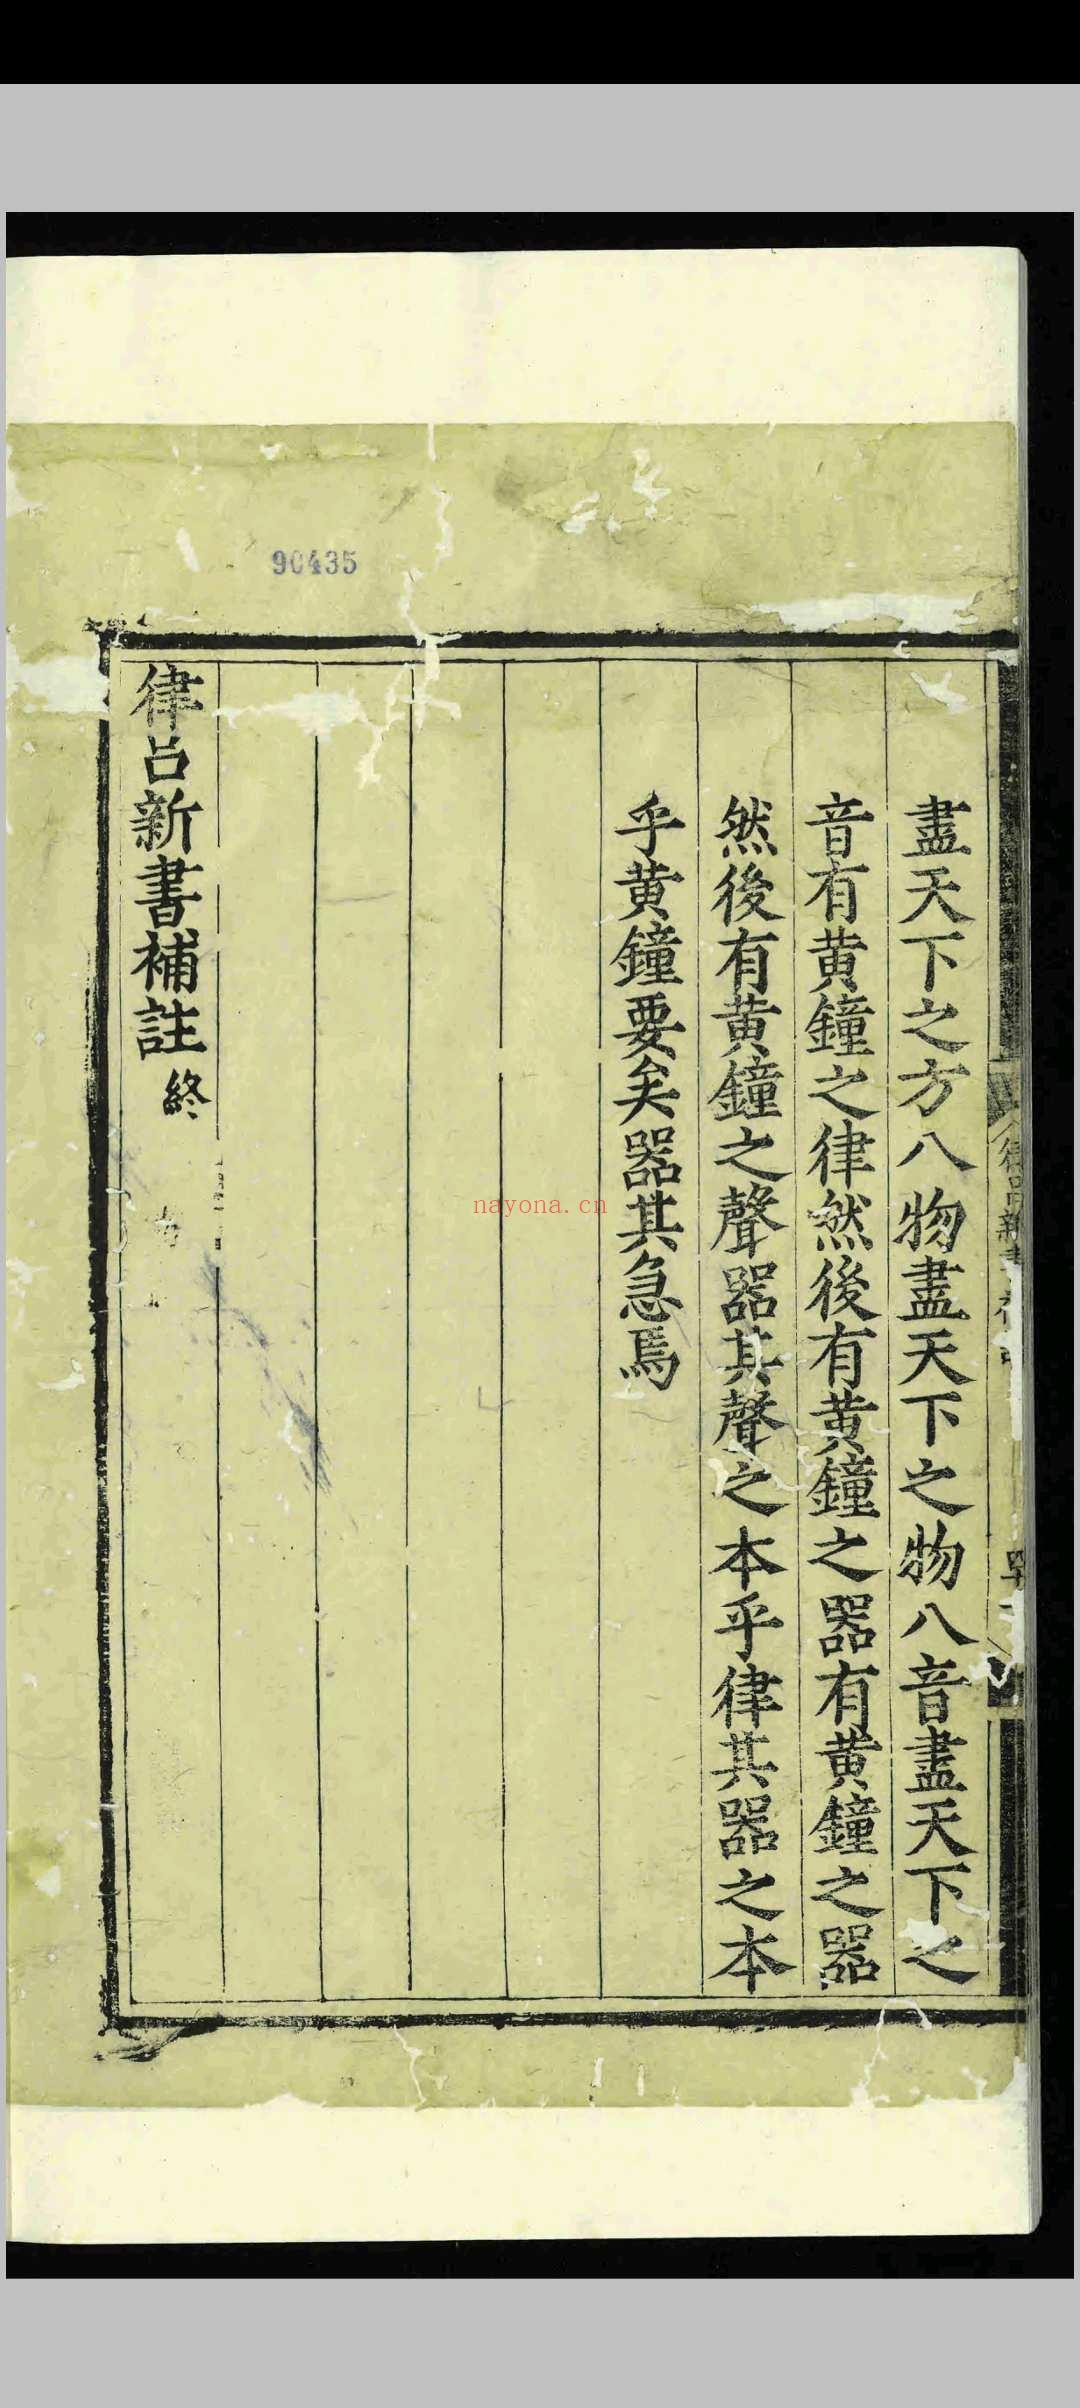 盡天下之方八物盡天下之物八音盡天下之
音有黄鐘之律然後有黄鐘之器有黄鐘之器
然後有黄鐘之聲器其聲之本乎律其器之本
乎黄鐘要矣器其急焉
律吕新書補註終
90435
nayona.cn